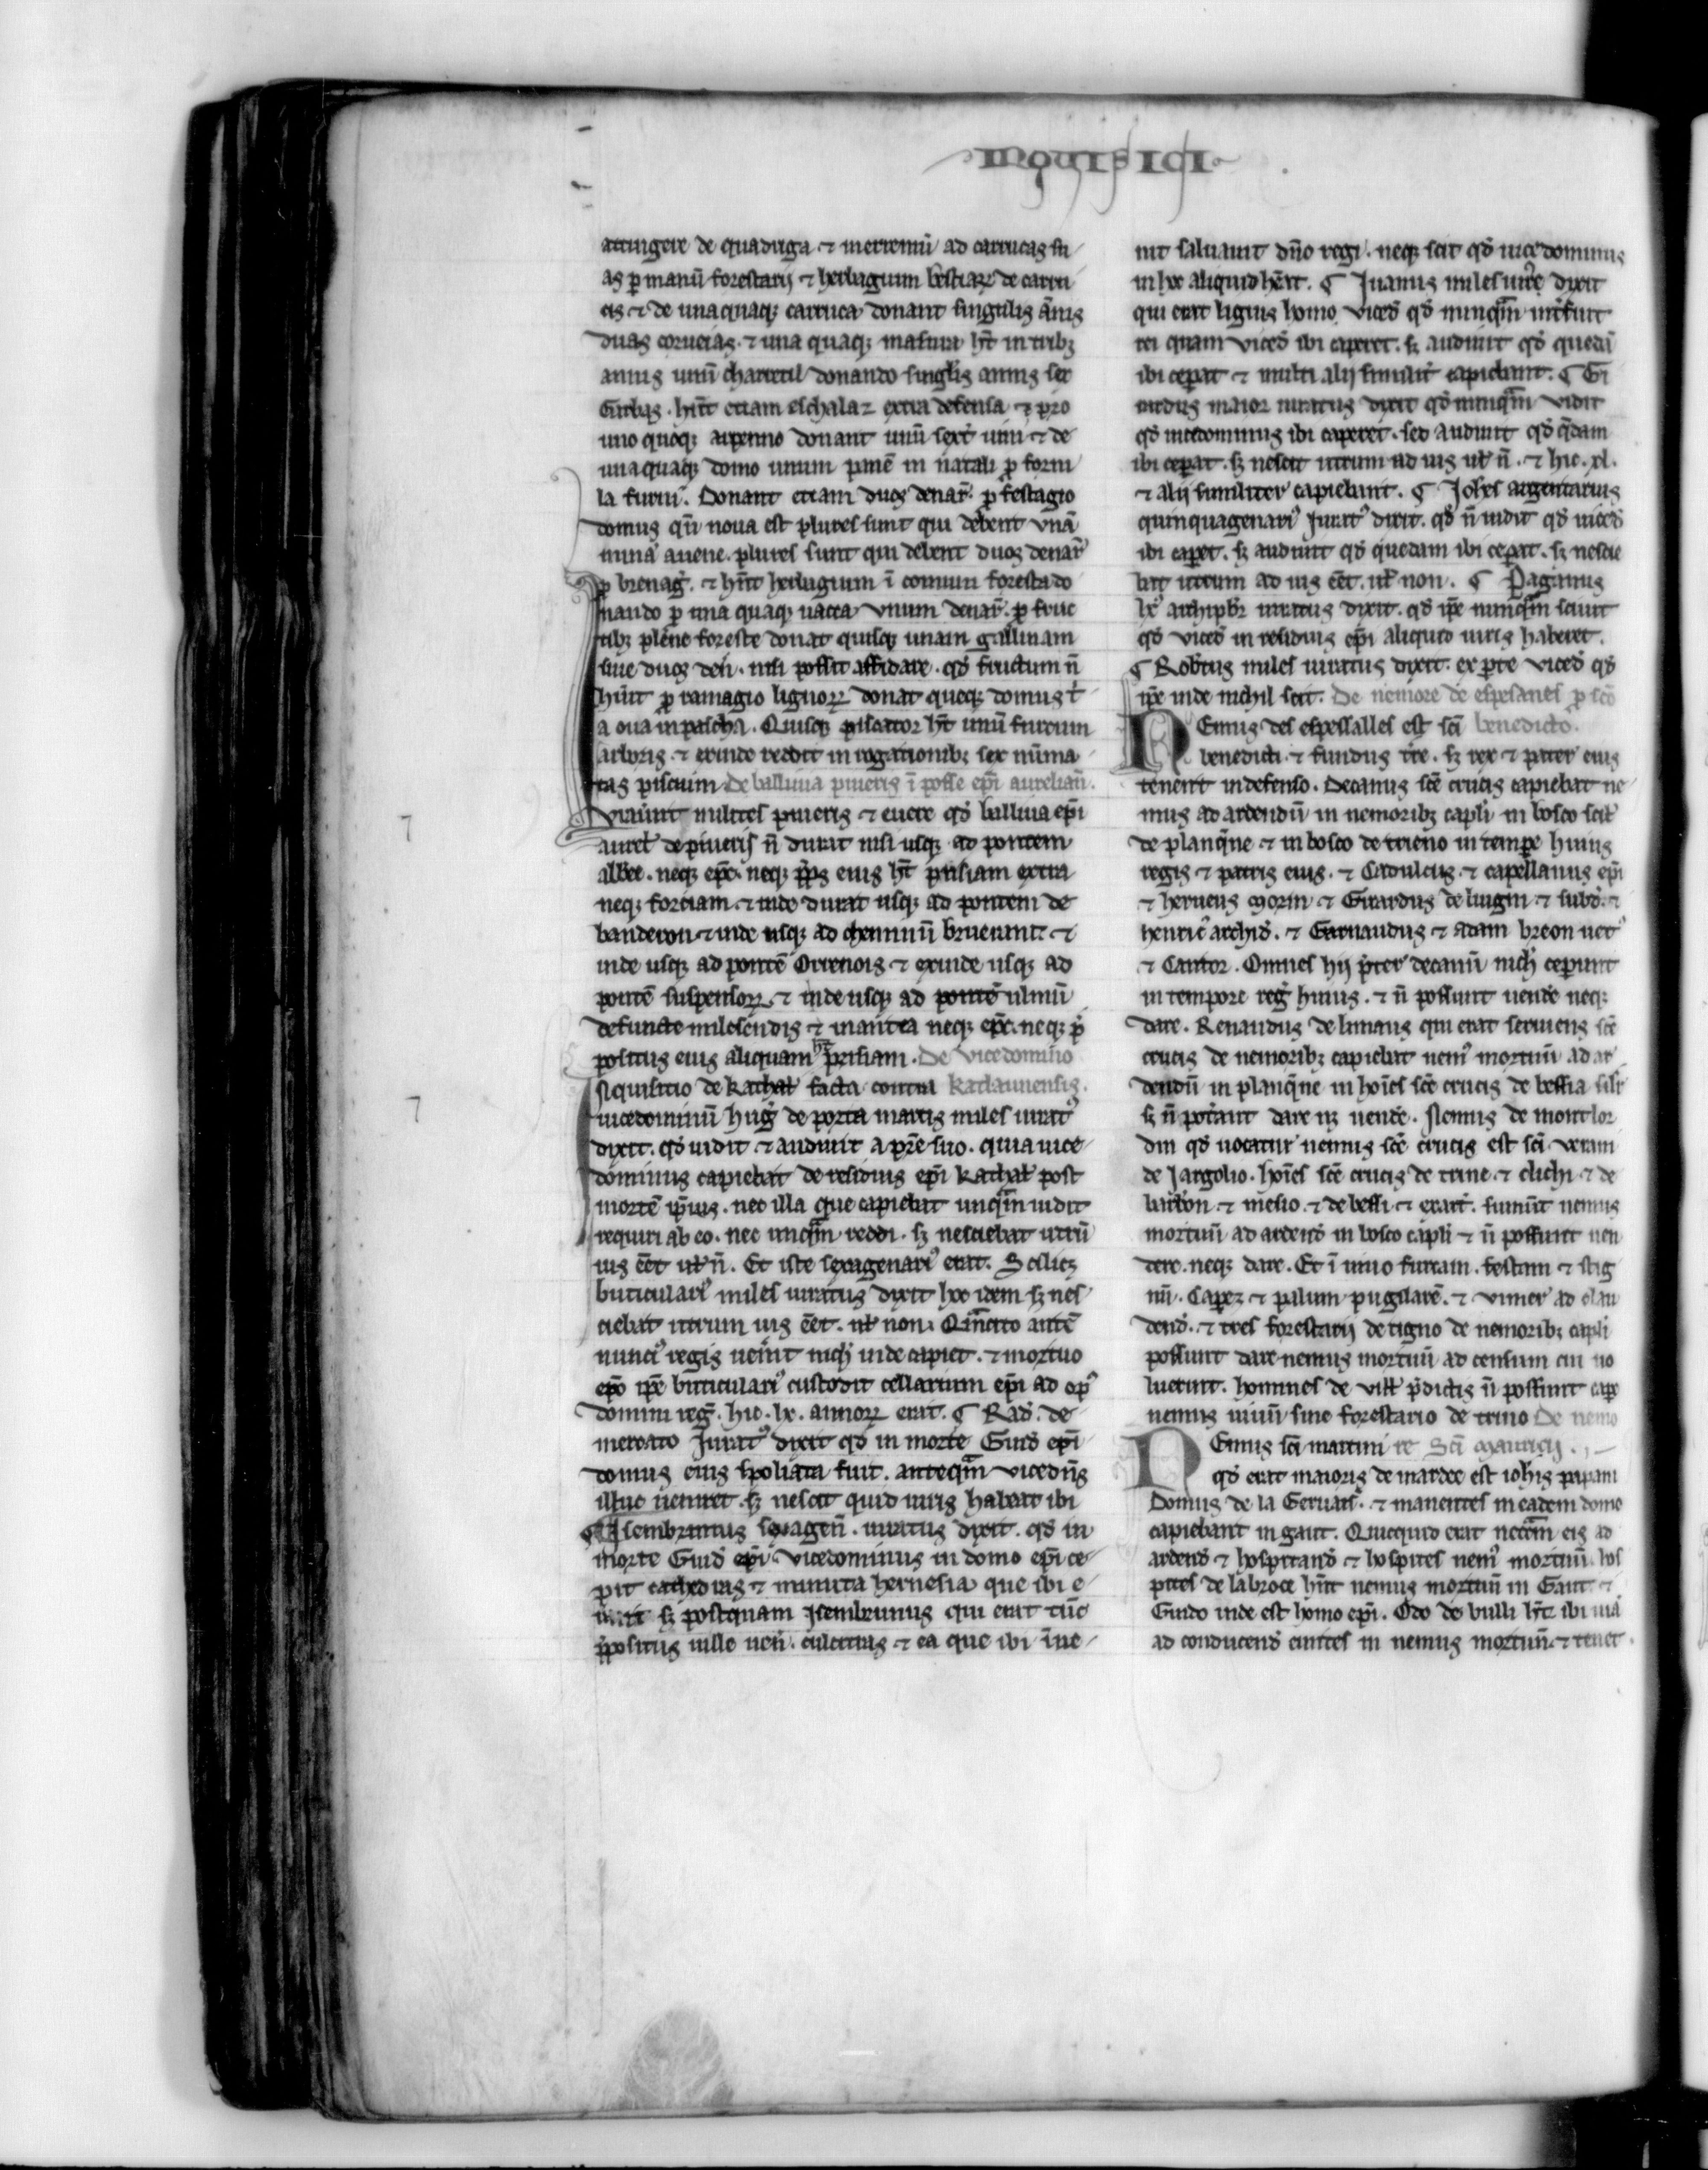 INQUISICI
attingere de quadriga ⁊ merremū ad carrucas su
as ꝑ manū forestarij ⁊ herbagium bestiaꝝ de carru
cis ⁊ de unaquaqꝫ carruca donant singulis ānis
duas corveias. ⁊ una quaqꝫ masura hn̄t in tribꝫ
annis unū charretil donando singlis annis sex
Garbas. hn̄t etiam eschalaz extra defensa ⁊ pro
uno quoqꝫ arpenno donant unū sext̄ uini ⁊ de
unaquaqꝫ domo unum panē in natali ꝓ forni
la furni. Donant etiam duos denar̄. ꝓ festagio
domus qn̄ noua est plures sunt qui debent vnā
minā auene. plures sunt qui debent duos denar̄
ꝓ brenaḡ. ⁊ hn̄t herbagium ī comuni foresta do
nando ꝓ una quaqꝫ uacca vnum denar̄. ꝓ fruc
tibꝫ plene foreste donat quisqꝫ unam gallinam
siue duos den̄. nisi possit affidare. qđ fructum n̄
hn̄t ꝓ ramagio lignoꝝ donat queqꝫ domus t̄
a oua in pascha. Quisqꝫ piscator ht̄ unū furcum
arboris. ⁊ exinde reddit in rogationibꝫ sex nūma
tas piscium De balliuia piueris ī posse ep̄i aurelian̄.
Iurauērt milites piueris ⁊ euere qđ balliuia ep̄i
aurel̄ de piueris n̄ durat nisi usqꝫ ad pontem
albee. neqꝫ ep̄c. neqꝫ p̄p̄s eius ht̄ prisiam extra
neqꝫ forciam ⁊ inde durat usqꝫ ad pontem de
banderon ⁊ inde usqꝫ ad cheminū bruerant. ⁊
inde usqꝫ ad pontē Orrenois ⁊ exinde usqꝫ ad
pontē suspensoꝝ ⁊ inde usqꝫ ad pontē ulmū
defuncte milesendis ⁊ in antea neqꝫ ep̄c. neqꝫ p̄
positus eius aliquam ht̄ prisiam. De vicedomino
Inquisitio de Kathal̄ facta contra Kathaunensis.
uicedominū huḡ de porta martis miles iurat᷒
dixit. qđ uidit ⁊ audiuit a pr̄e suo. quia uice
dominus capiebat de residuis ep̄i Kathal̄ post
mortē ip̄ius. nec illa que capiebat unqm̄ uidit
requiri ab eo. nec unqm̄ reddi. sꝫ nesciebat utrū
ius eēt ul̄ n̄. Et iste sexagenari᷒ erat. Sellicꝫ
buticulari᷒ miles iuratus dixit hoc idem sꝫ nes
ciebat utrum ius eēt. ul̄ non. Qm̄cito autē
nunci᷒ regis uēnit nich̄ inde capiet. ⁊ mortuo
ep̄o ip̄e buticulari᷒ custodit cellarium ep̄i ad op᷒
domini reḡ. hic. lx. annoꝝ erat. ¶ Rad̄. de
mercato Jurat᷒ dixit qđ in morte Guid̄ ep̄i
domus eius spoliata fuit. anteqm̄ vicedn̄s
illuc ueniret. sꝫ nescit quid iuris habeat ibi
¶ Isembrinus sexagen̄. iuratus dixit. qđ in
morte Guid̄ ep̄i. vicedominus in domo ep̄i ce
pit cathedras ⁊ minuta hernesia que ibi e
rant sꝫ postquam Isembrunus qui erat tūc
p̄positus uille uen̄. culcitras ⁊ ea que ibi īue
nit saluauit dn̄o regi. neqꝫ scit qđ uicedominus
in hoc aliquid hēret. ¶ Juanus miles iur̄e dixit
qui erat ligius homo viced̄ qđ nunqm̄ int̄fuit
rei quam viced̄ ibi caperet. sꝫ audiuit qđ quedā
ibi ceperat ⁊ multi alij similit̄ capiebant. ¶ Gi
rardus maior iuratus dixit qđ nunqm̄ vidit
qđ uicedominus ibi caperet. sed audiuit qđ q̄dam
ibi ceperat. sꝫ nescit utrum ad ius ul̄ n̄. ⁊ hic. xl.
⁊ alij similiter capiebant. ¶ Joh̄es argentarius
quinquagenari᷒ Jurat᷒ dixit. qđ n̄ uidit qđ uiced̄
ibi caperet. sꝫ audiuit qđ quedam ibi ceperat. sꝫ nescie
bat utrum ad ius eēt. ul̄ non. ¶ Paganus
lx᷒ archipbr̄ iuratus dixit. qđ ip̄e nunqm̄ sciuit
qđ viced̄ in residuis ep̄i aliquid iuris haberet.
¶ Rob̄tus miles iuratus dixit. ex parte viced̄ qđ
ip̄e inde nichil scit. De nemore de espesanes ꝓ sc̄o
NEmus des espessalles est sc̄i benedicto.
benedicti. ⁊ fundus tr̄e. sꝫ rex ⁊ pater eius
tenent in defenso. Decanus sc̄e crucis capiebat ne
mus ad ardendū in nemoribꝫ capl̄i in bosco scil̄
de planq̄ne ⁊ in bosco de treno in tempore huius
regis ⁊ patris eius. ⁊ Cadulcus. ⁊ capellanus ep̄i
⁊ herueus morin ⁊ Girardus de lugni ⁊ subd̄. ⁊
henric᷒ archid̄. ⁊ Garnaudus ⁊ adam breon uet᷒
⁊ Cantor. Omnes hij p̄ter decanū nich̄ ceperunt
in tempore reḡ huius. ⁊ n̄ possunt uendē neqꝫ
dare. Renaudus de limaus qui erat seruiens sc̄e
crucis de nemoribꝫ capiebat nem᷒ mortuū ad ar
dendū in planq̄ne in hoīes sc̄e crucis de bessia sil̄r
sꝫ n̄ pot̄ant dare uꝫ uendē. Nemus de montlor
din qđ uocatur nemus sc̄e crucis est sc̄i verani
de Jargolio. hoīes sc̄e crucis de trine. ⁊ clichi. ⁊ de
buchon. ⁊ mesio. ⁊ de bessi ⁊ erant̄. sumūt nemus
mortuū ad ardend̄ in bosco capl̄i ⁊ n̄ possunt uen
dere. neqꝫ dare. Et ī uiuo furcam. festam ⁊ stig
nū. Caperꝫ ⁊ palum pugilarē. ⁊ vimer̄ ad clau
dend̄. ⁊ tres forestarij de tigno de nemoribꝫ capl̄i
possunt dare nemus mortuū ad censum cui uo
luerint. homines de vill̄ p̄dictis n̄ possunt cape
nemus uiuū sine forestario de trino De nemo
NEmus sc̄i martini re Sc̄i mauricij.
qđ erat maioris de mardee est ioh̄is papani
Domus de la Geruais̄. ⁊ manentes in eadem domo
capiebant in gaut. Quicquid erat necc̄m eis ad
ardend̄ ⁊ hospitand̄ ⁊ hospites nem᷒ mortuū. hos
pites de labroce hn̄t nemus mortuū in Gaut ⁊
Guido inde est homo ep̄i. Odo de bulli ht̄ ibi uiā
ad conducend̄ eiuites in nemus mortuū. ⁊ tenet